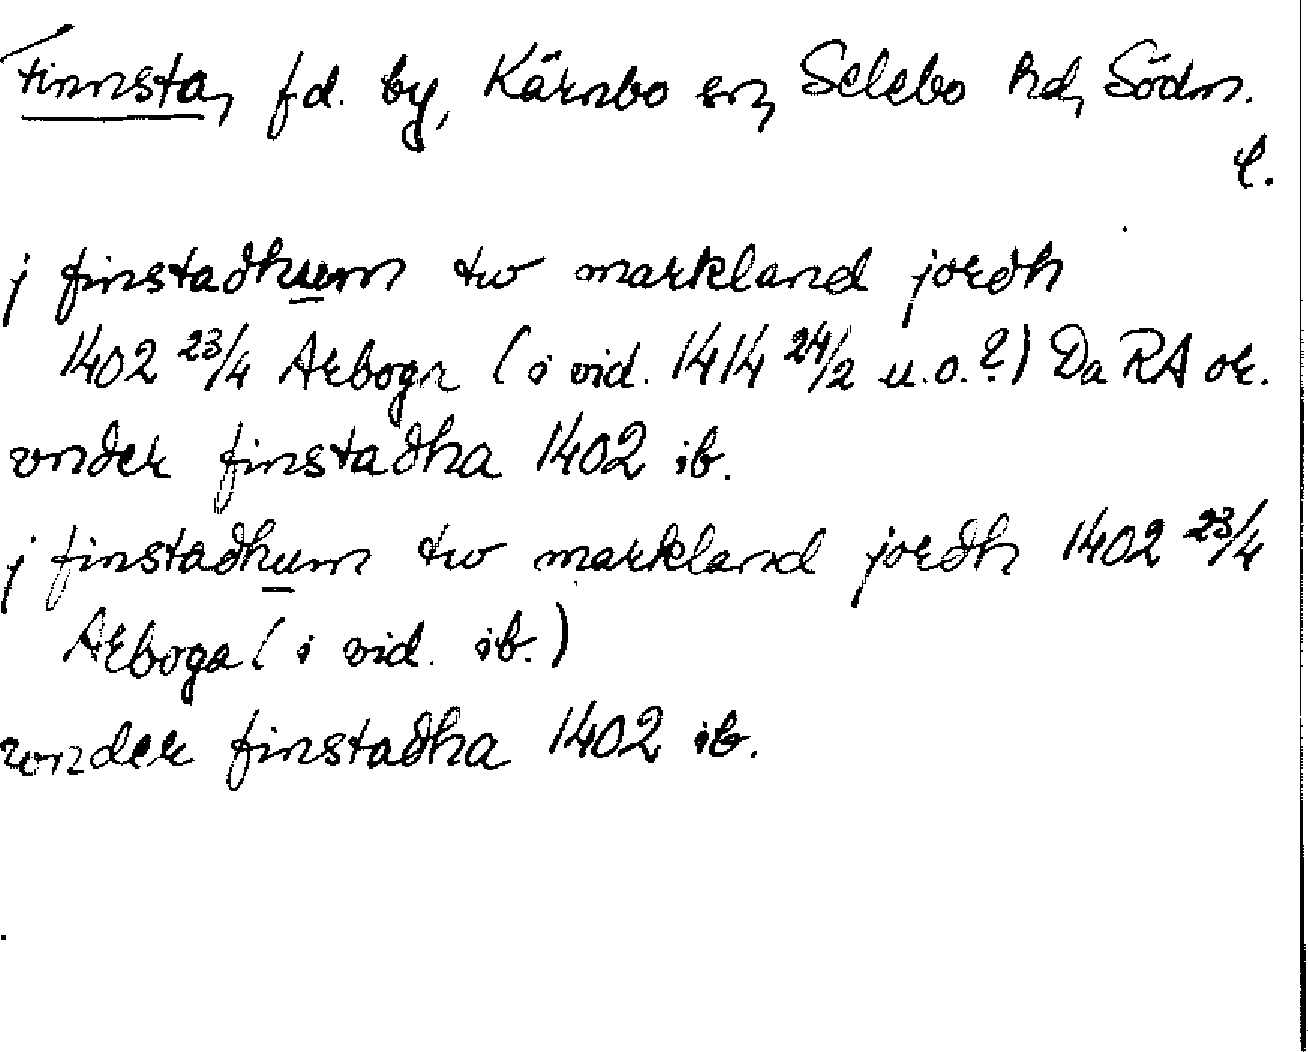 Finnsta, fd. by, Kärnbo sn, Selebo hd, Södm.
l.
j finstadhum tw markland jordh
1402 23/4 Arboga (i vid. 1414 24/2 u.o.?) Da RA or.
vnder finstadha 1402 ib.
j finstadhum tw markland jordh 1402 23/4
Arboga (i vid. ib.)
vnder finstadha 1402 ib.